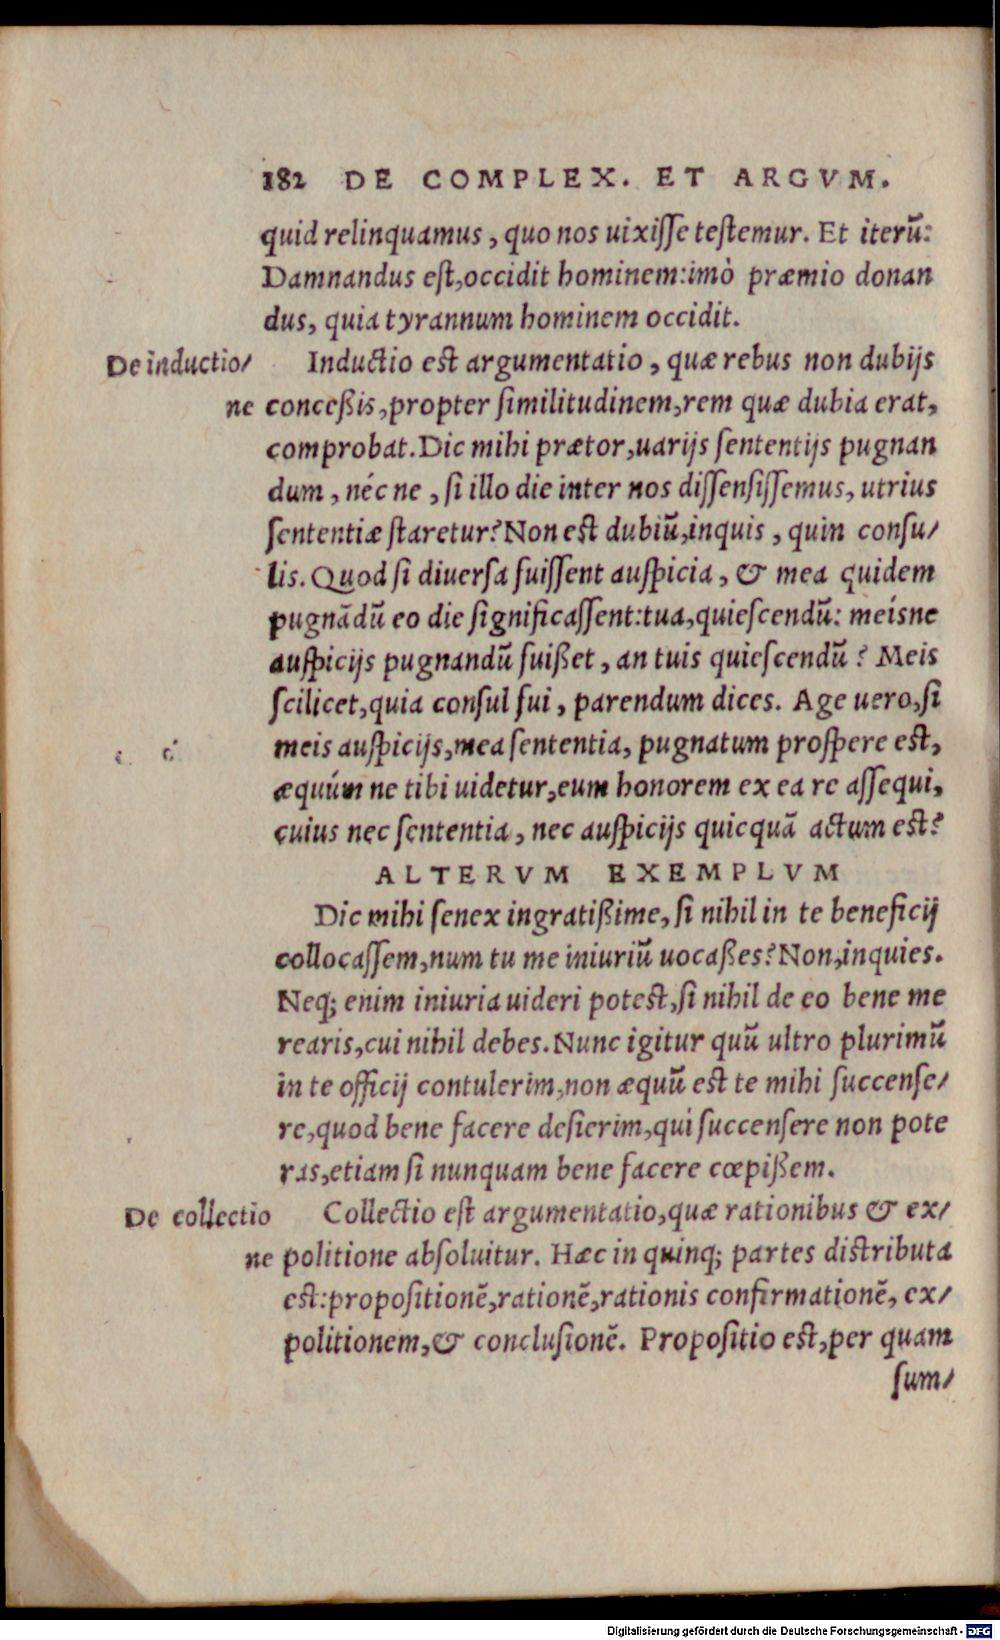 182 DE COMPLEX. ET ARGVM.
quid relinquamus, quo nos uixiſſe teſtemur. Et iterū:
Damnandus eſt, occidit hominem: imò præmio donan
dus, quia tyrannum hominem occidit.
De inductio/
ne
Inductio est argumentatio, quæ rebus non dubijs
conceßis, propter ſimilitudinem, rem quæ dubia erat,
comprobat. Dic mihi prætor, uarijs ſententijs pugnan
dum, néc ne, ſi illo die inter nos diſſenſiſſemus, utrius
ſententiæ ſtaretur? Non est dubiũ, inquis, quin conſu/
lis. Quod ſi diuerſa fuiſſent auſpicia, & mea quidem
pugnãdũ eo die ſignificaſſent: tua, quieſcendũ: meísne
auſpicijs pugnandũ fuißet, an tuis quieſcendũ? Meis
ſcilicet, quia conſul fui, parendum dices. Age uero, ſi
meis auſpicijs, mea ſententia, pugnatum proſpere est,
æquúm ne tibi uidetur, eum honorem ex ea re aſſequi,
cuius nec ſententia, nec auſpicijs quicquã actum est?
ALTERVM EXEMPLVM
Dic mihi ſenex ingratißime, ſi nihil in te beneficij
collocaſſem, num tu me iniuriũ uocaßes? Non, inquies.
Neq; enim iniuria uideri potest, ſi nihil de eo bene me
rearis, cui nihil debes. Nunc igitur quũ ultro plurimũ
in te officij contulerim, non æquũ est te mihi ſuccenſe/
re, quod bene facere deſierim, qui ſuccenſere non pote
ras, etiam ſi nunquam bene facere cœpißem.
De collectio
ne
Collectio eſt argumentatio, quæ rationibus & ex/
politione abſoluitur. Hæc in quinq; partes distributa
est: propoſitionẽ, rationẽ, rationis confirmationẽ, ex/
politionem, & concluſionẽ. Propoſitio est, per quam
ſum/
Digitalisierung gefördert durch die Deutsche Forschungsgemeinschaft - DFG